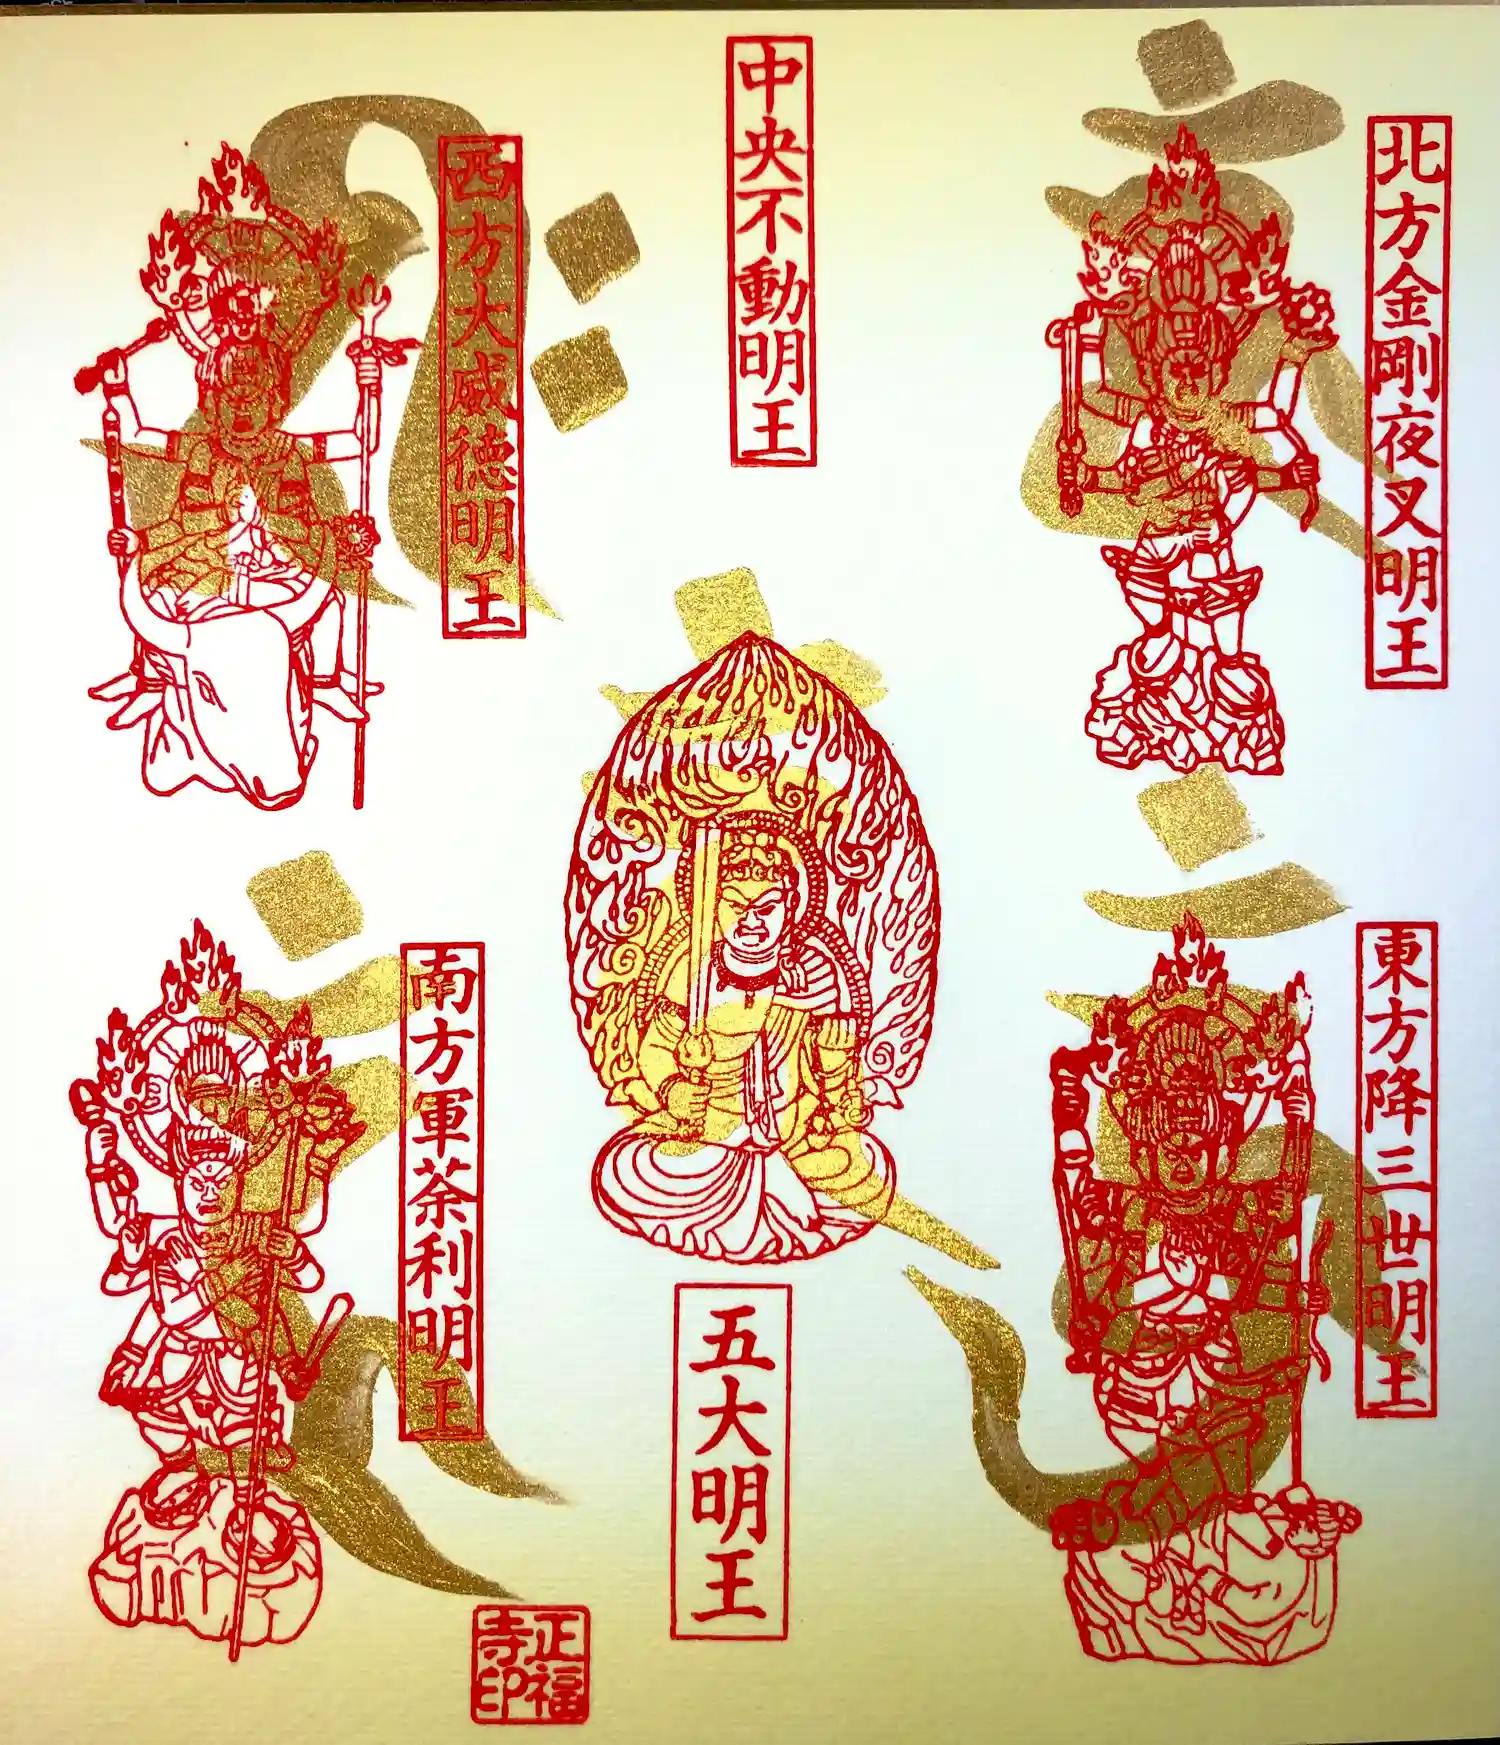 中央不動明王
北方金剛夜叉明王
西方大威徳明王
東方降三世明王
南方軍荼利明王
五大明王
正福寺印